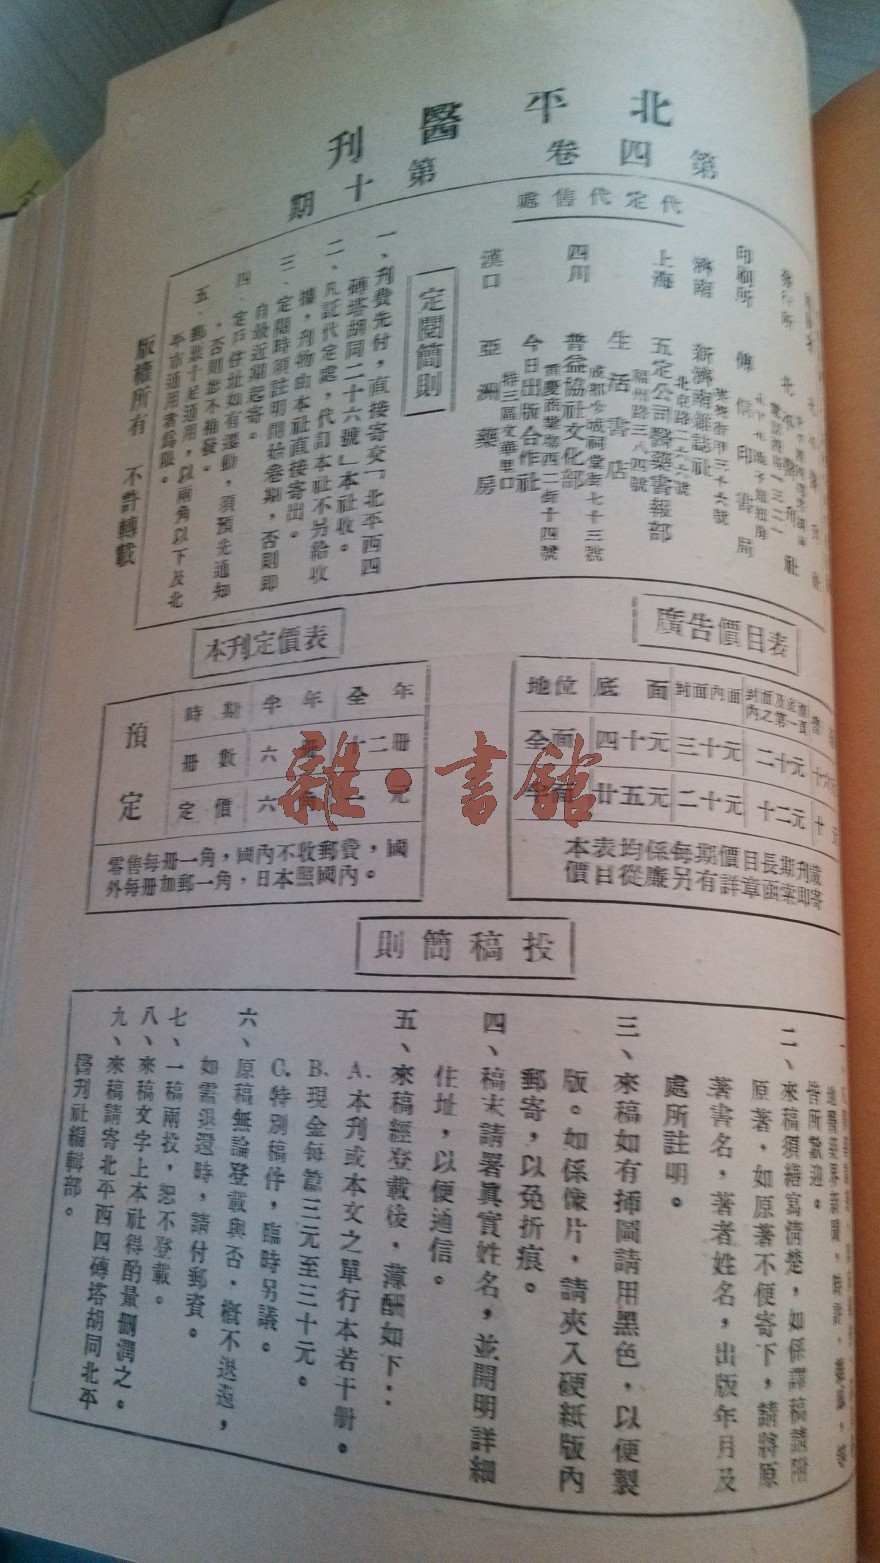 北平醫刊
第四卷 第十期
代定代售處
印刷所 傳信印書局
濟南 新濟南雜誌社
上海 五定公司醫藥書報部
北京路二六六號
生活書店
福州路三八四號
四川 普益協社文化部
成都少城祠堂街七十三號
今日出版合作社
重慶商業場西二街十四號
漢口 亞洲藥房
特三區文華里口
定閱簡則
一、刊費先付，直接寄交「北平西四
磚塔胡同二十六號」本社收。
二、凡託代定處，代訂本社不另給收
據，刊物由本社直接寄出。
三、定閱時須註明開始卷期，否則即
自最近期起寄。
四、定戶住址如有遷動，須預先通知
，否則恕不補發。
五、郵票十足通用，以兩角以下及北
平市通用者為限。
版權所有 不許轉載
廣告價目表
地位 底面 封面內面
全面 四十元 三十元 二十元
半面 廿五元 二十元 十二元
本表均係每期價目長期刊載
價目從廉另有詳章函索即寄
本刊定價表
預定
時期 半年 全年
冊數 六冊 十二冊
定價 六角 一元
零售每册一角，國內不收郵費，國
外每册加郵一角，日本照國內。
投稿簡則
地醫藥界新聞，
皆所歡迎。
二、來稿須繕寫清楚，如係譯稿請附
原著，如原著不便寄下，請將原
著書名，著者姓名，出版年月及
處所註明。
三、來稿如有插圖請用黑色，以便製
版。如係像片，請夾入硬紙版內
郵寄，以免折痕。
四、稿末請署眞實姓名，並開明詳細
住址，以便通信。
五、來稿經登載後，薄酬如下：
A. 本刊或本文之單行本若干册。
B. 現金每篇三元至三十元。
C. 特別稿件，臨時另議。
六、原稿無論登載與否，概不退還，
如需退還時，請付郵資。
七、一稿兩投，恕不登載。
八、來稿文字上本社得酌量刪潤之。
九、來稿請寄北平西四磚塔胡同北平
醫刊社編輯部。
雜·書館